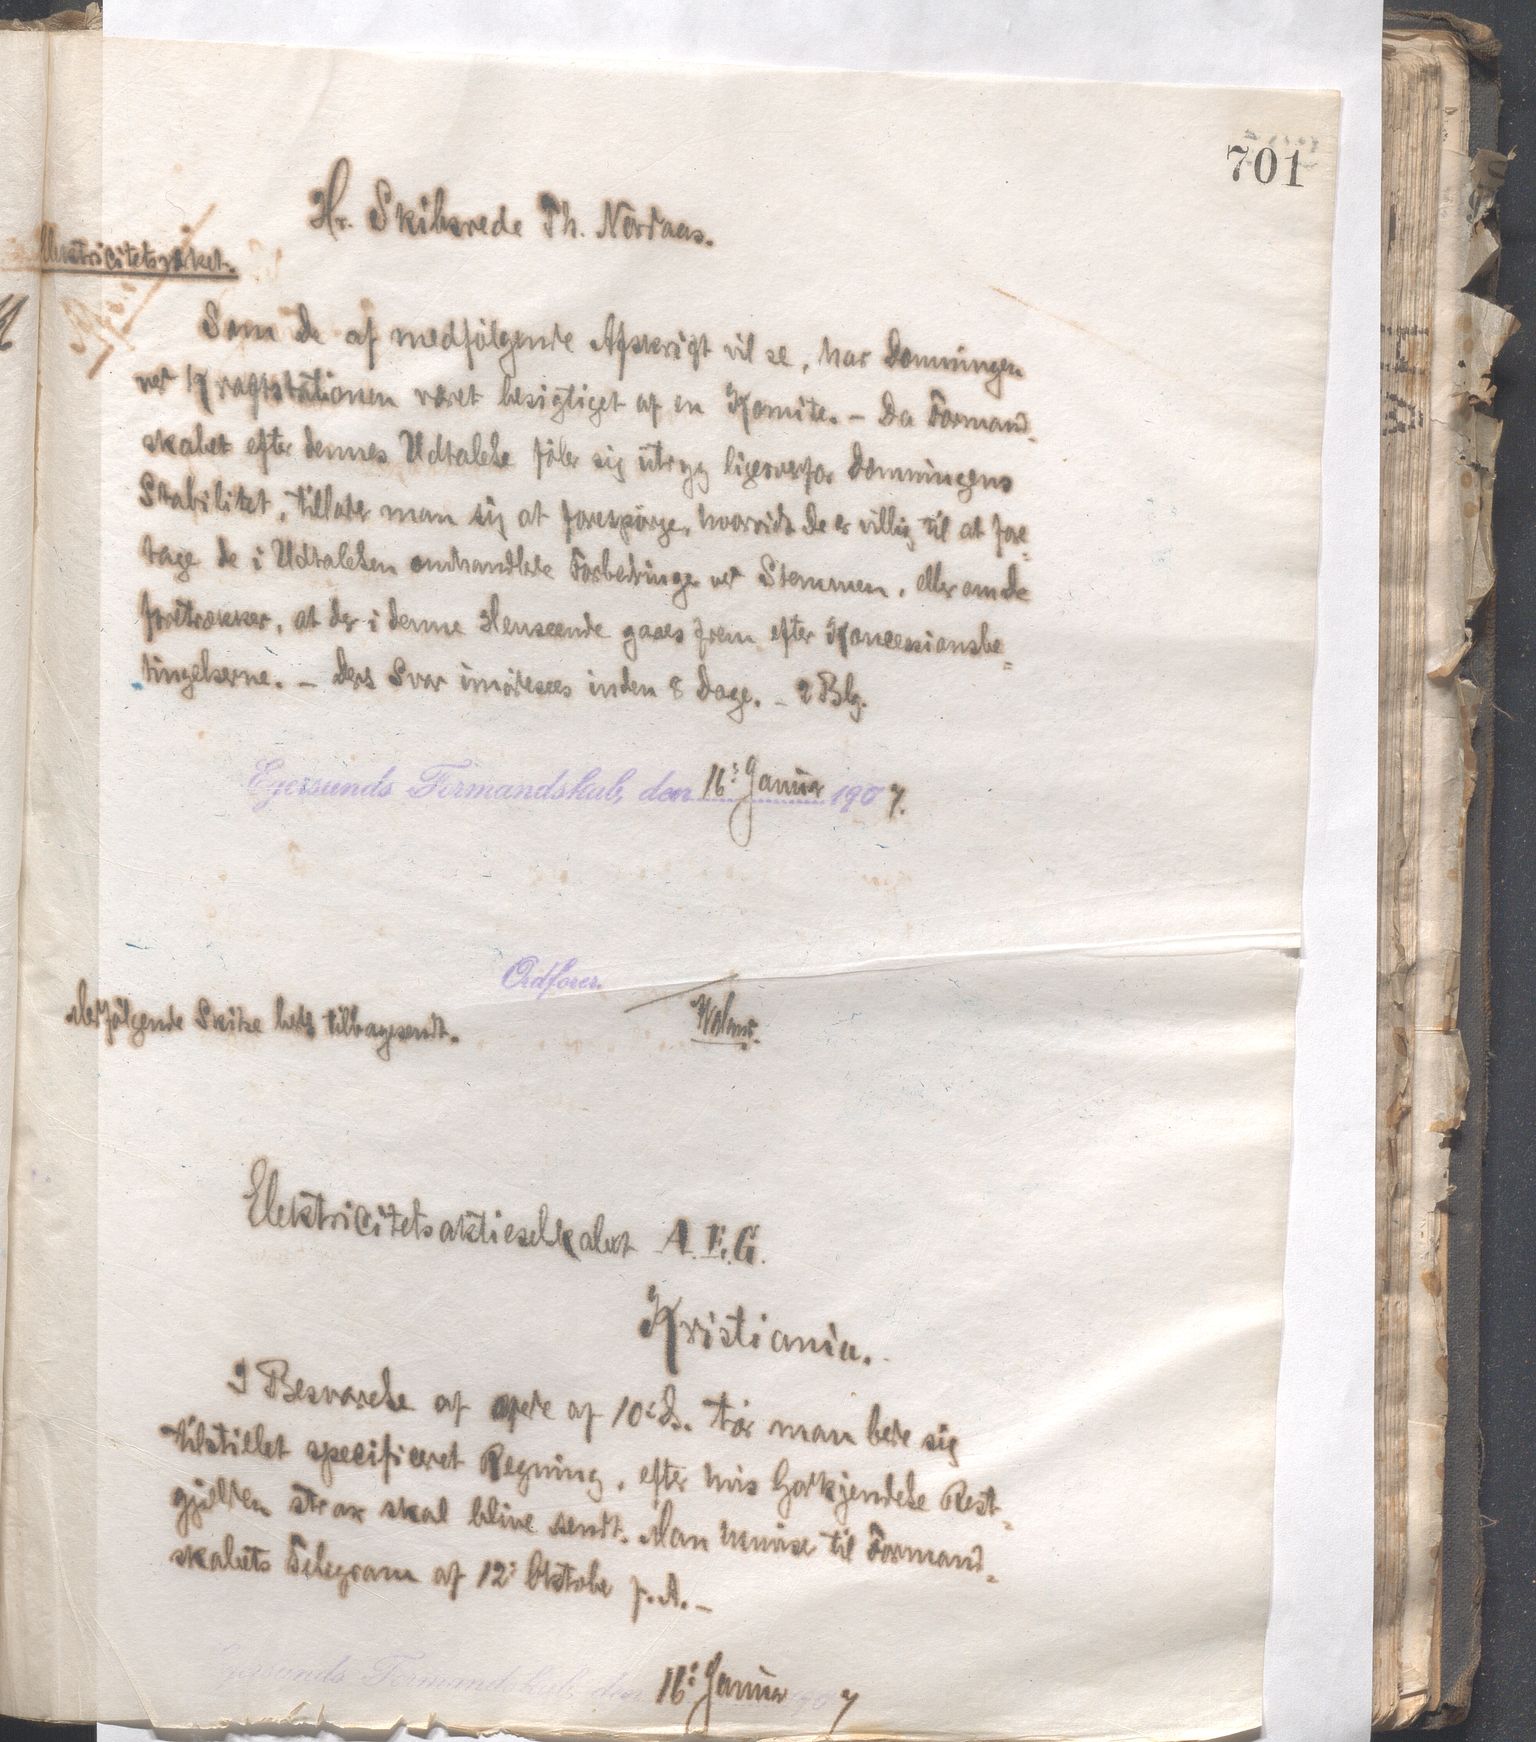 701
Hr. Skibsrede Th. Nordaas.
Elektricitetsverket.
Som De af medfølgende Afskrift vil se, har Dæmningen
ved Kraftstationen været besigtiget af en Komite. – Da Formand-
skabet efter dennes Udtalelse føler sig utryg ligeoverfor Dæmningens
Stabilitet, tillader man sig at forespørge, hvorvidt De er villig til at fore-
tage de i Udtalelsen omhandlede Forbedringer ved Stemmen, eller om De
foretrækker, at der i denne Henseende gaaes frem efter Koncessionsbe-
tingelserne. – Ders Svar imødesees inden 8 Dage. – 2 Blg.
Egersunds Formandskab, den 16: Januar 1907.
Ordfører.
Medfølgende Skitse bedes tilbagesendt.
Elektricitetsaktieselskabet A.E.G.
Kristiania.
I Besvarelse af ædle af 10: ds. tør man bede sig
tilstillet specificeret Regning, efter hvis Godkjendelse Rest-
gjælden strax skal blive sendt. Man henviser til Formand-
skabets Telegram af 12: Oktober f.A. –
Egersunds Formandskab, den 16: Januar 1907